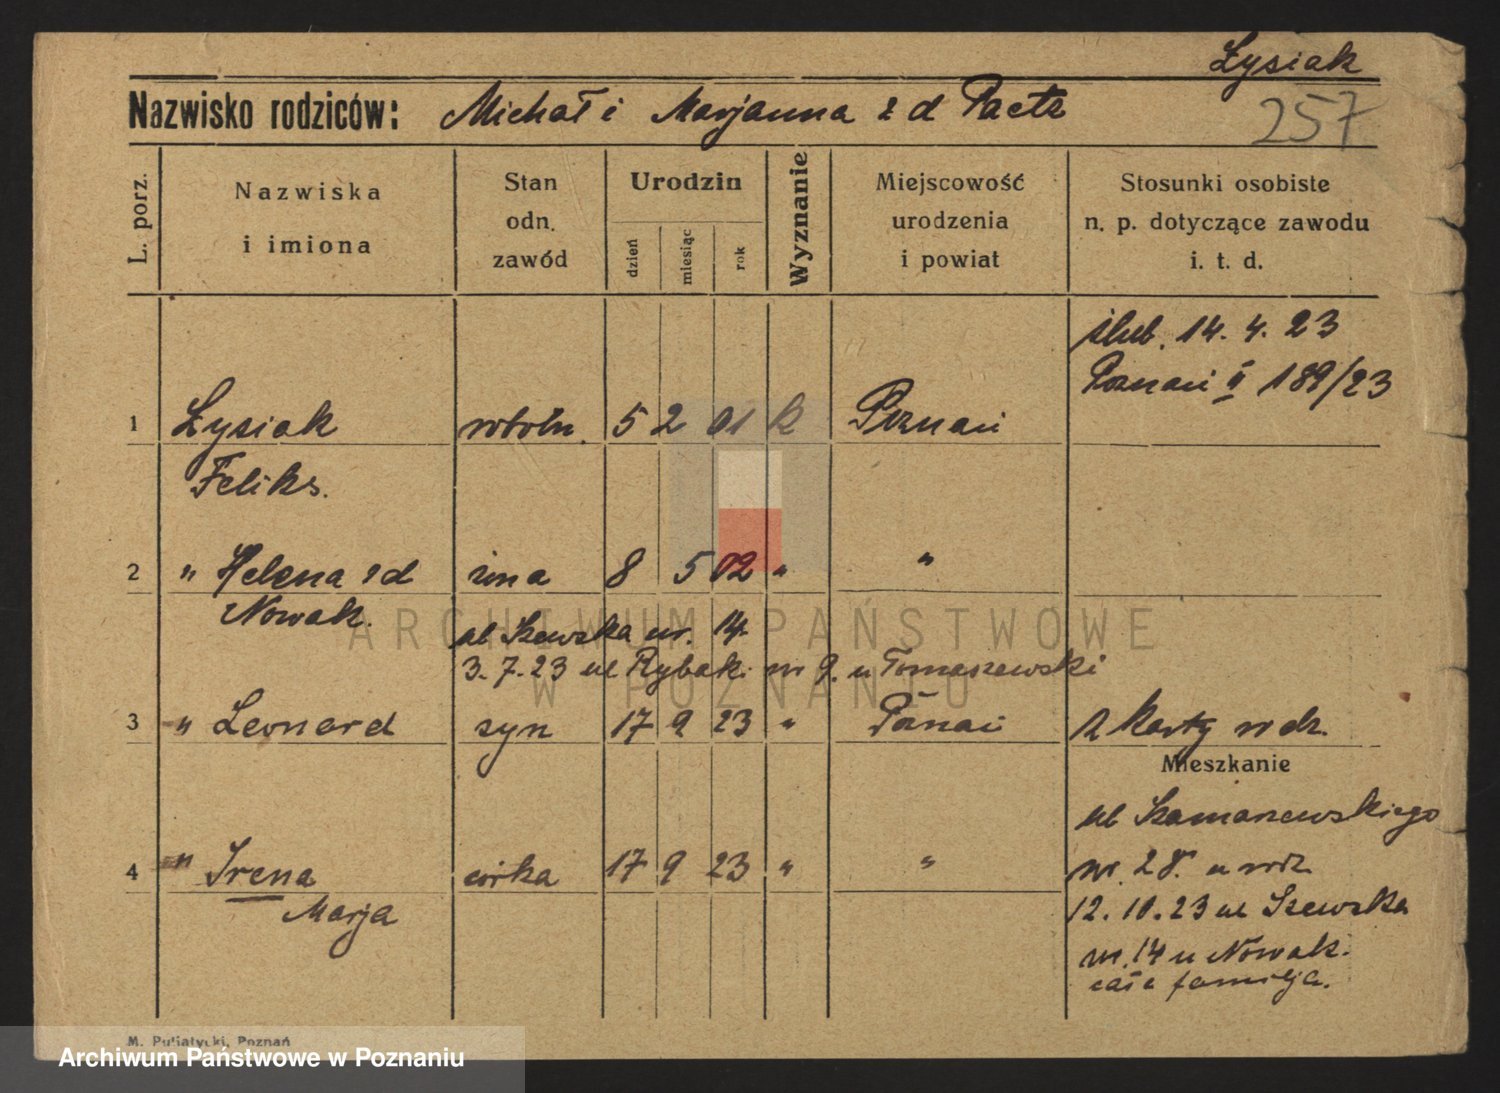 Łysiak
257
Nazwisko rodziców: Michał i Marjanna z d Pacts
L. porz.
Nazwiska
i imiona
Stan
odn.
zawód
Urodzin
dzień
miesiąc
rok
Wyznanie
Miejscowość
urodzenia
i powiat
Stosunki osobiste
n. p. dotyczące zawodu
i. t. d.
ślub. 14. 4. 23
Poznań II 189/23
1 Łysiak robotn. 5 2 01 k Poznań
Feliks.
2 " Helena z d żona 8 5 02 " "
Nowak.
ul Szewska nr. 14.
3. 7. 23 ul Rybak. nr 9. u Tomaszewski
3 " Leonard syn 17 9 23 " Poznań 2 karty rodz.
Mieszkanie
ul Szamarzewskiego
4 " Irena córka 17 9 23 " " nr. 28. u rodz.
Marja
12. 10. 23 ul Szewska
nr. 14 u Nowak.
cała familja.
M. Putiatycki, Poznań
ARCHIWUM PAŃSTWOWE
W POZNANIU
Archiwum Państwowe w Poznaniu